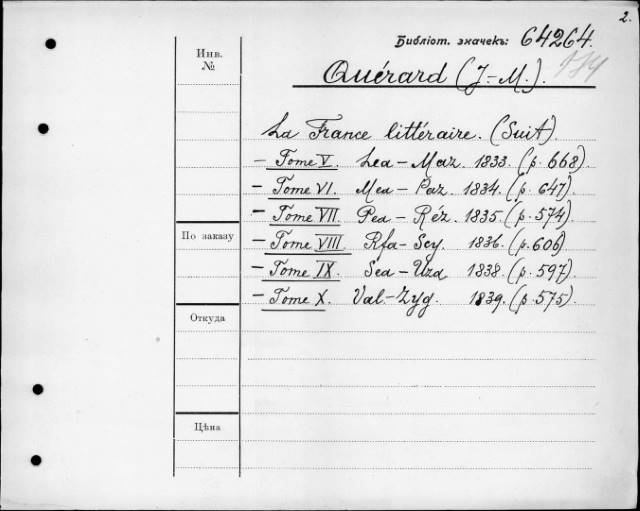 2.
Библіот. значекъ: 64264.
174
Инв.
№
Quérard (J.-M.).
La France littéraire. (Suit).
— Tome V. Lea — Maz. 1833. (p. 668).
— Tome VI. Mea — Paz. 1834. (p. 647).
— Tome VII. Pea — Réz. 1835. (p. 574).
По заказу
— Tome VIII. Rfa - Scy. 1836. (p. 606)
— Tome IX. Sea — Uza 1838. (p. 597).
— Tome X. Val - Zyg. 1839. (p. 575).
Откуда
Цѣна